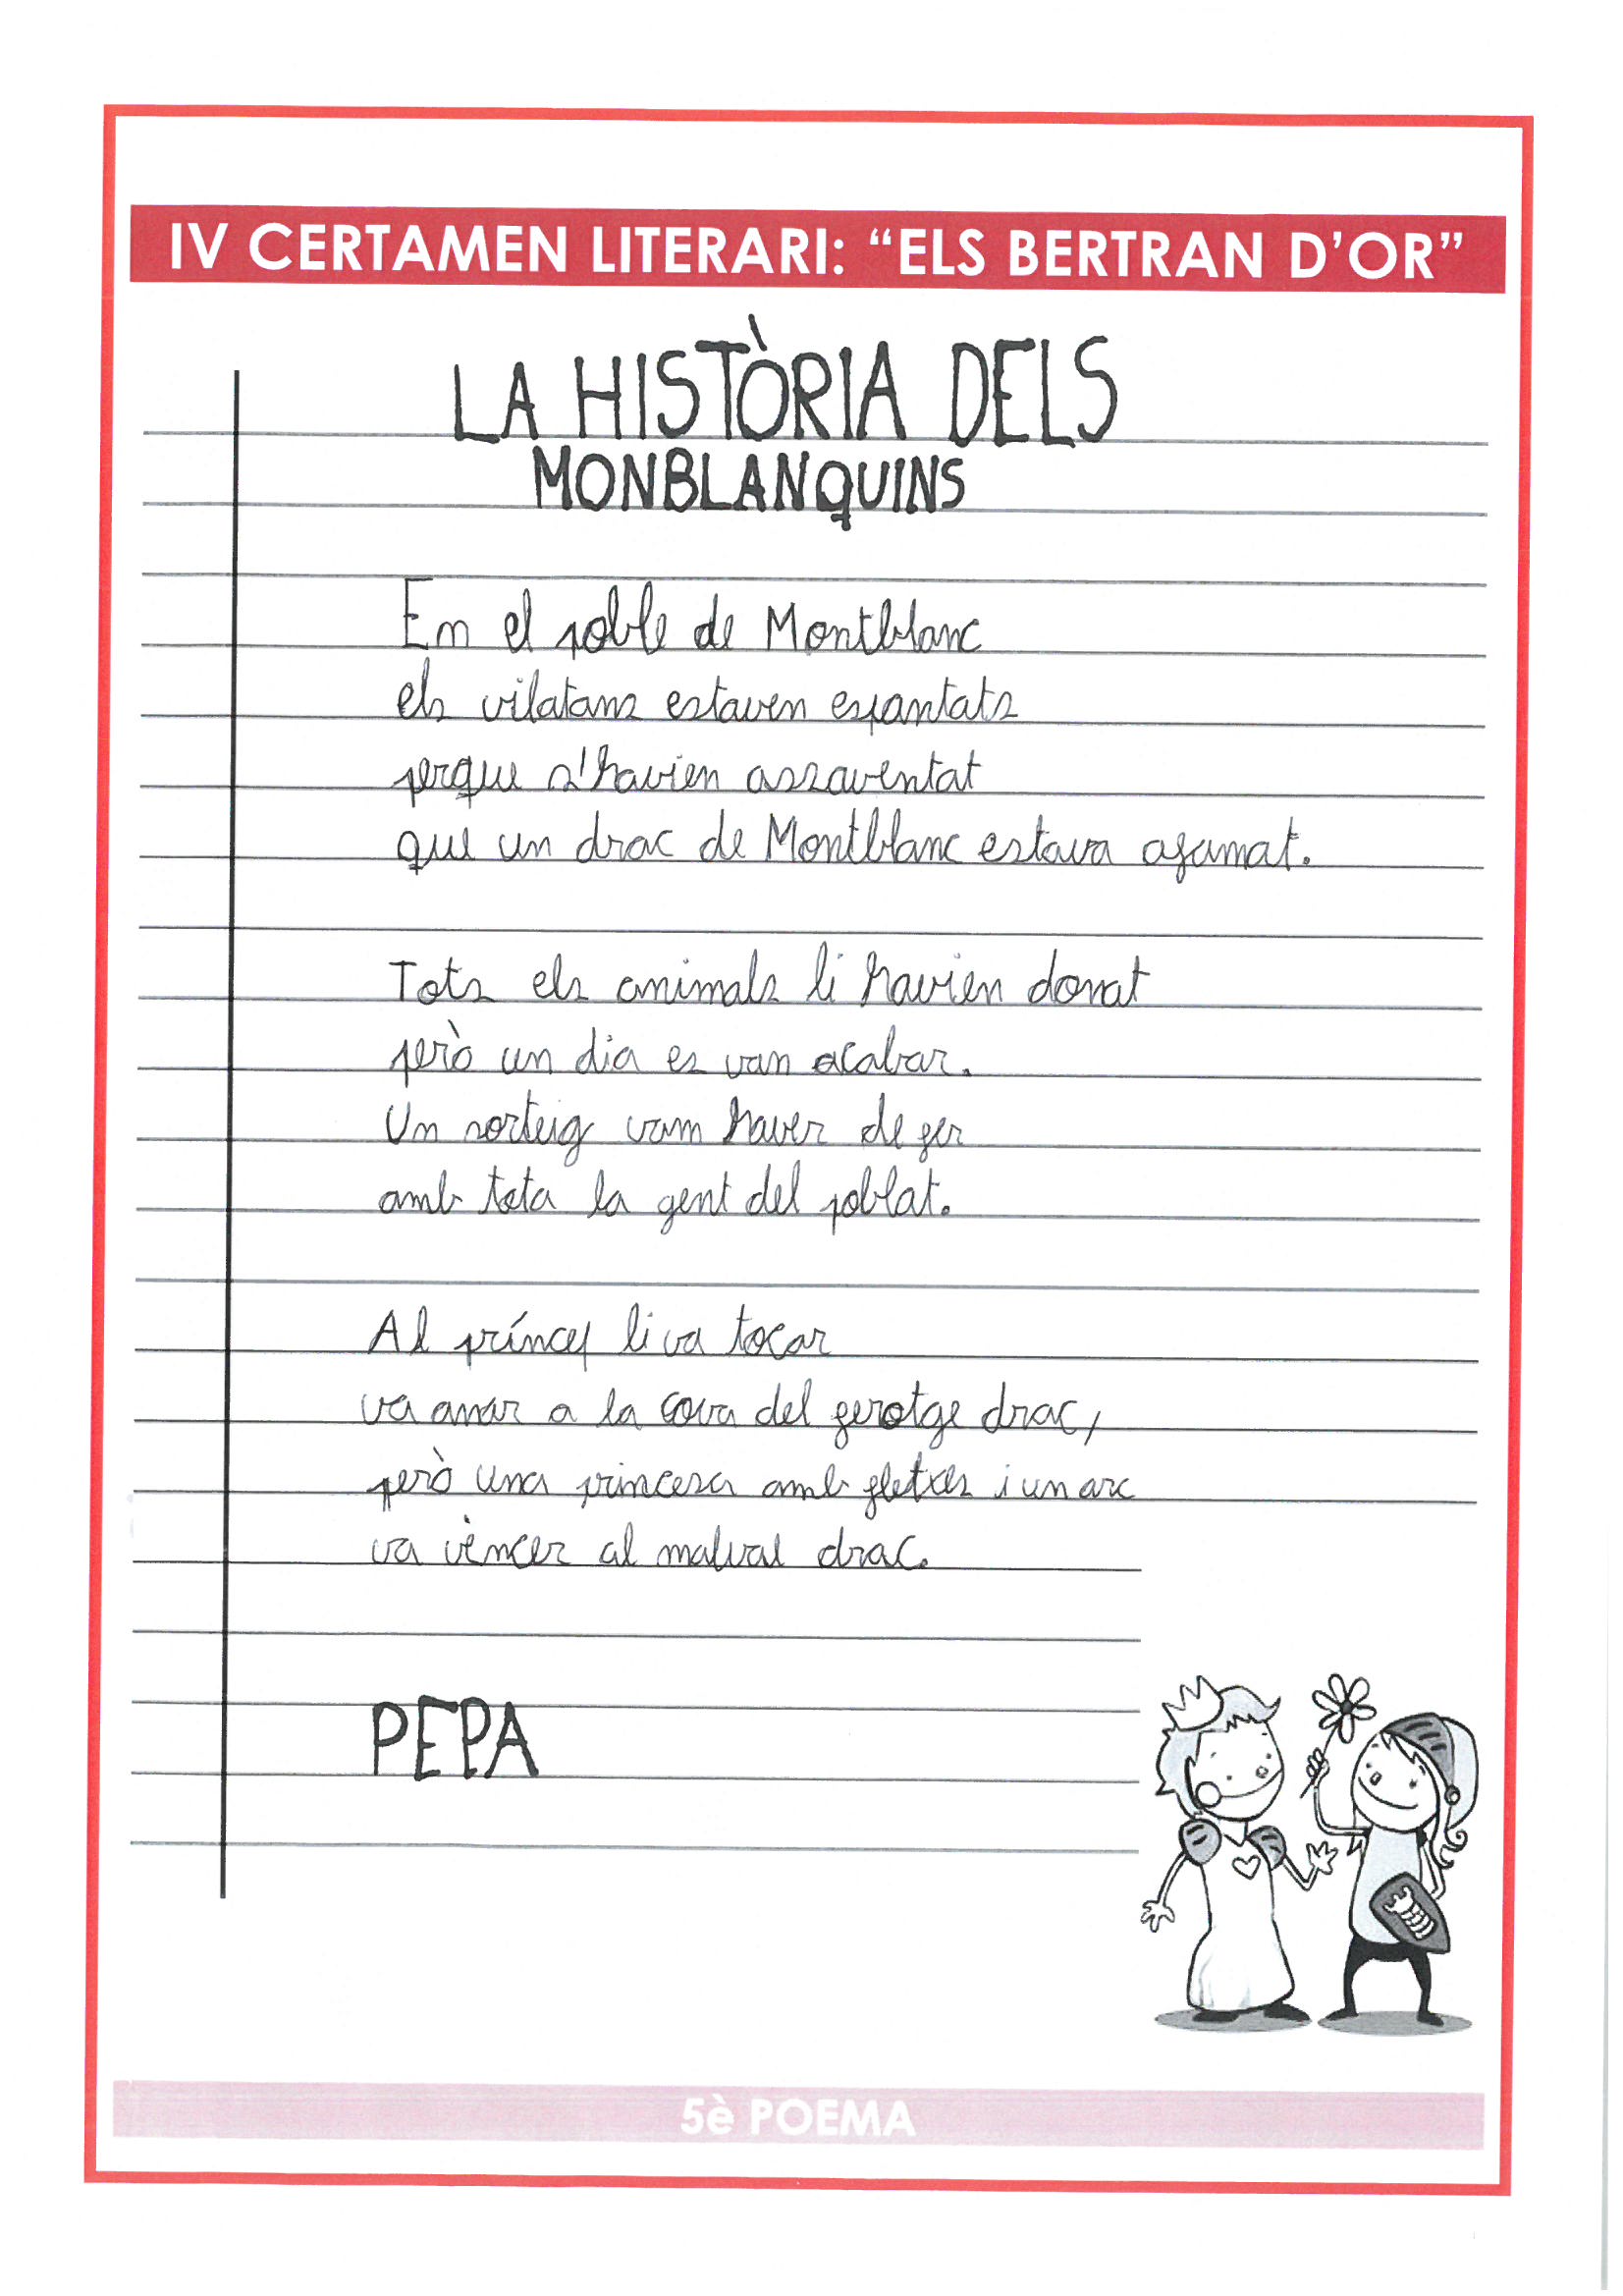 IV CERTAMEN LITERARI: “ELS BERTRAN D’OR”
LA HISTÒRIA DELS
MONBLANQUINS
En el poble de Montblanc
els vilatans estaven espantats
perque s'havien assaventat
que un drac de Montblanc estava afamat.
Tots els animals li havien donat
però un dia es van acabar.
Un sorteig vam haver de fer
amb tota la gent del poblat.
Al príncep li va tocar
va anar a la cova del ferotge drac,
però una princesa amb fletxes i un arc
va vèncer al malvat drac.
PEPA
5è POEMA